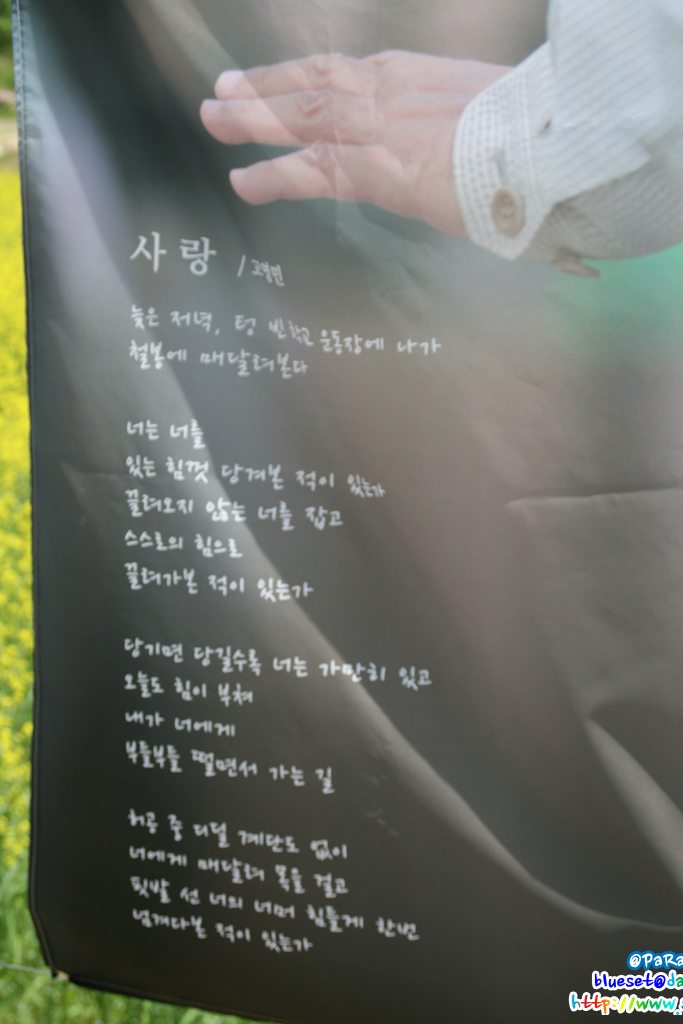 사랑 / 고영민
늦은 저녁, 텅 빈 학교 운동장에 나가
철봉에 매달려본다
너는 너를
있는 힘껏 당겨본 적이 있는가
끌려오지 않는 너를 잡고
스스로의 힘으로
끌려가본 적이 있는가
당기면 당길수록 너는 가만히 있고
오늘도 힘이 부쳐
내가 너에게
부들부들 떨면서 가는 길
허공 중 디딜 계단도 없이
너에게 매달려 목을 걸고
핏발 선 너의 너머 힘들게 한번
넘겨다본 적이 있는가
@PaRa
blueset@da
https://www.s